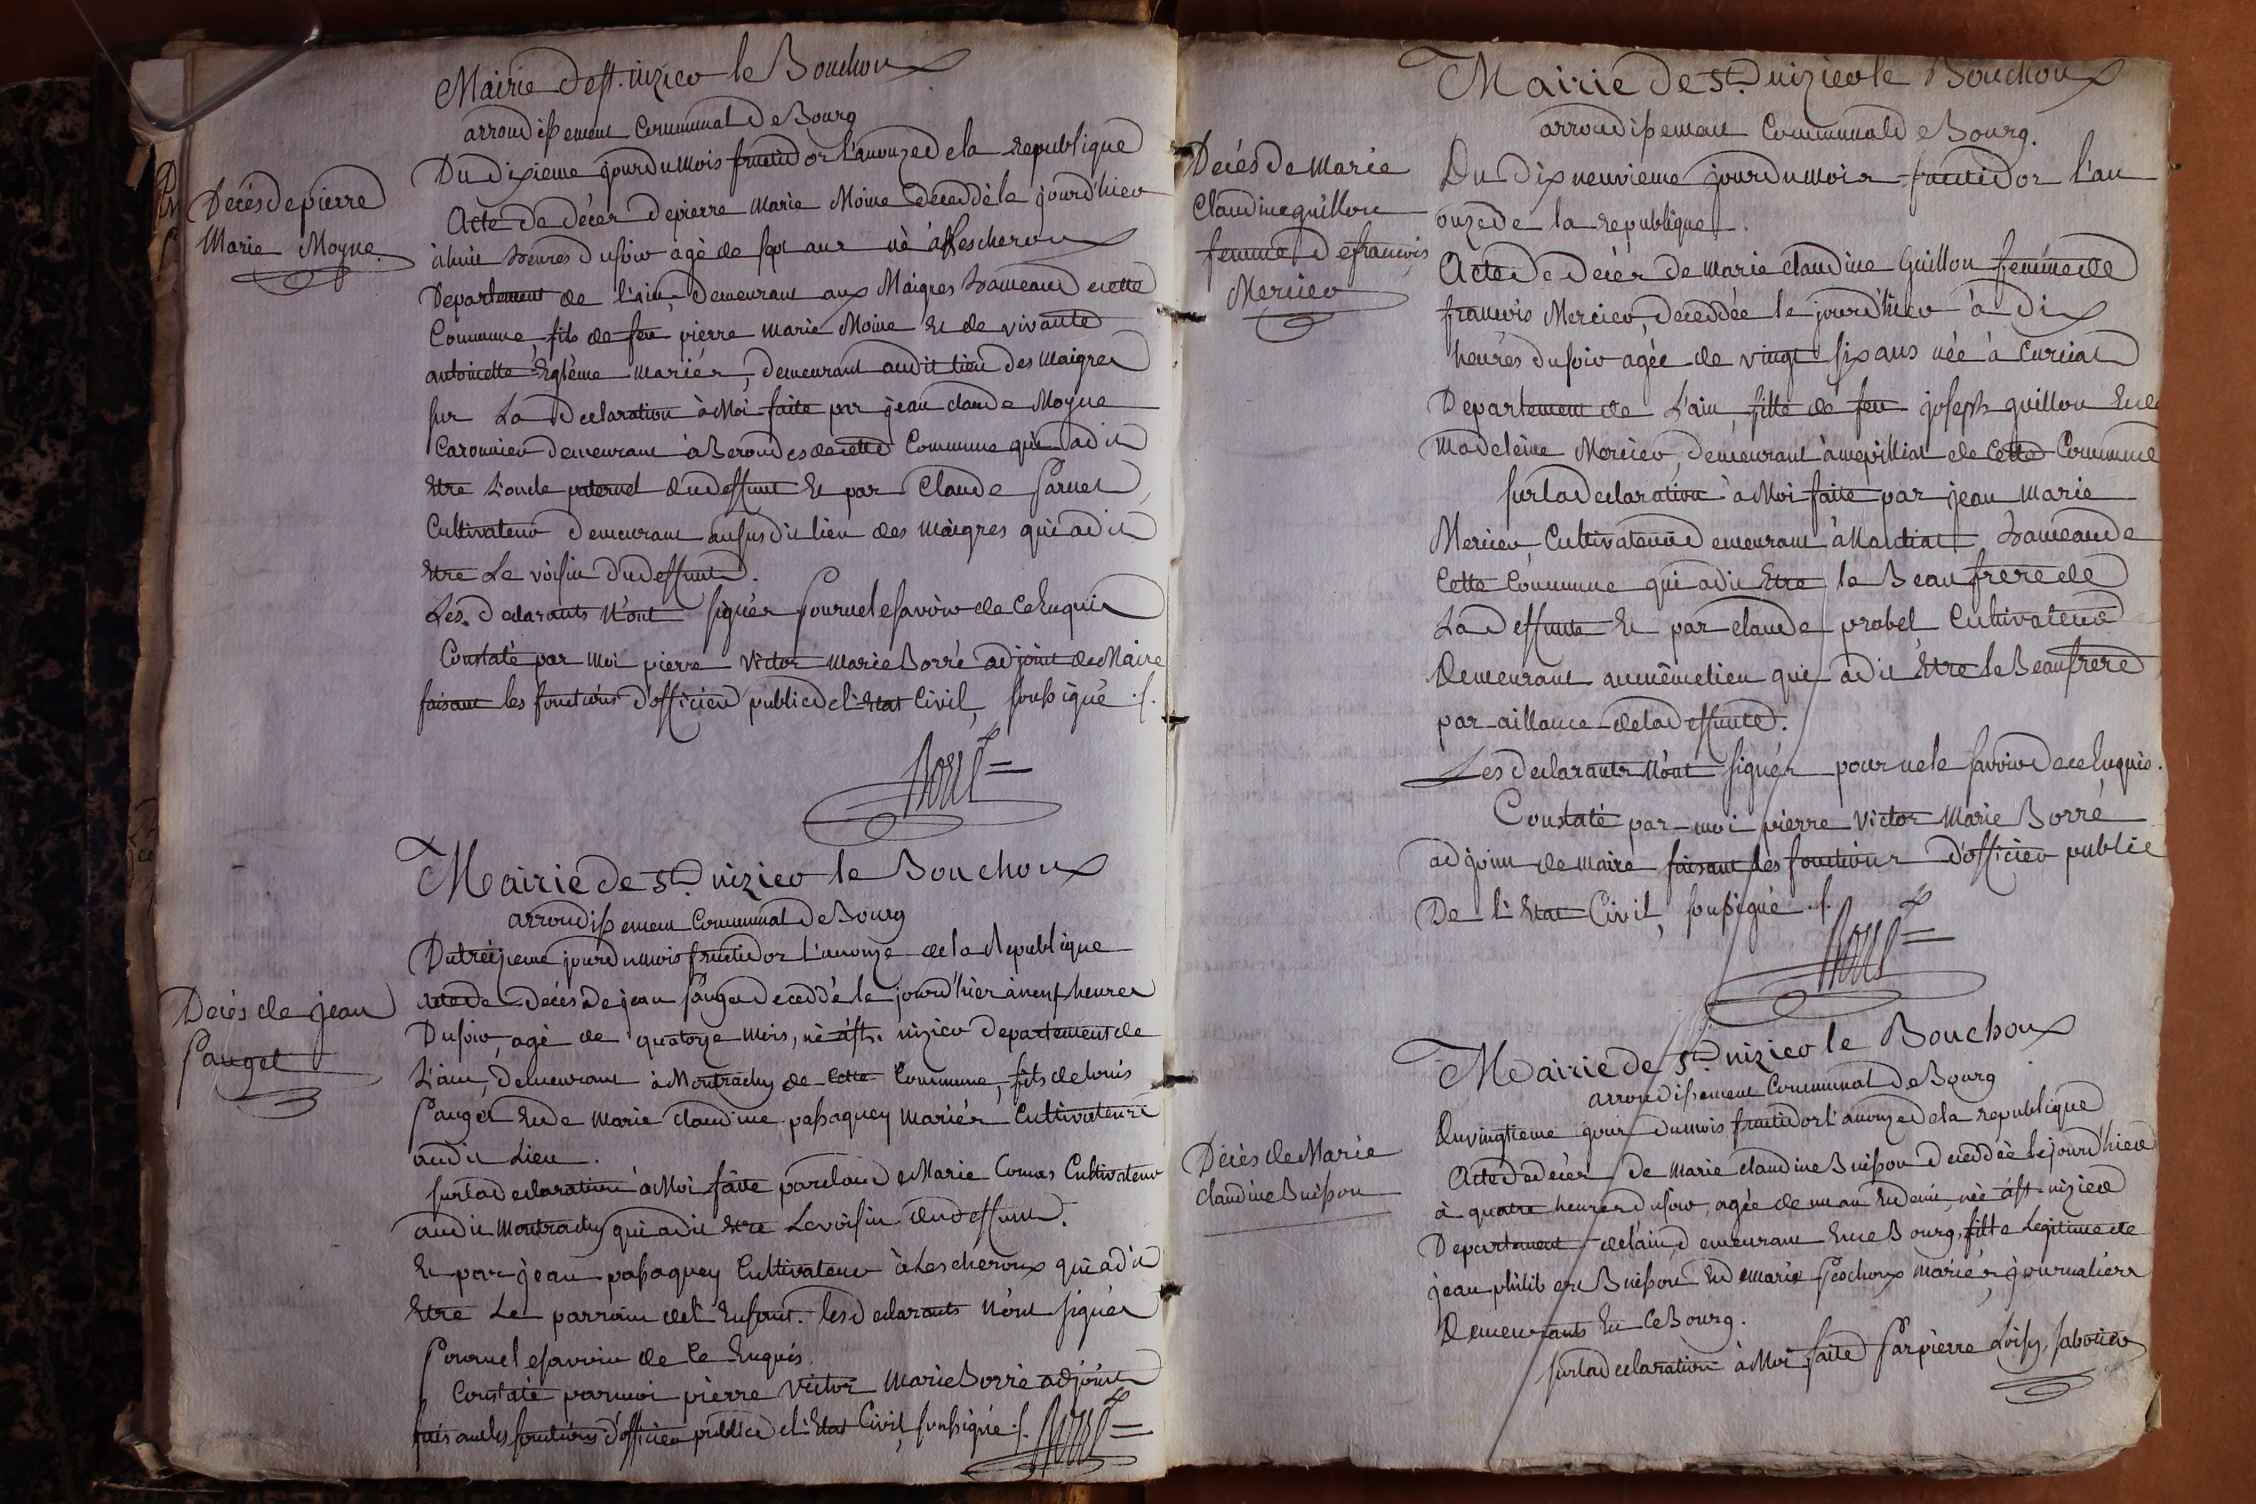 Mairie de st. nizier le Bouchoux
arrondissement Communal De Bourg
Décés de pierre
Marie Moyne
Du dixieme jour du mois fructidor l'an onze de la republique
Acte de décés de pierre marie Moine decedé le jour d'hier
à huit heures du soir agé de sept ans né à Lescheroux
Departement de l'ain, demeurant aux Maigres hameau de cette
Commune, fils de feu pierre marie Moine Et de vivante
antoinette mariés, demeurant audit lieu des maigres
sur La declaration à Moi faite par jean claude Moyne
demeurant à de cette Commune qui a dit
Etre L'oncle paternel du deffunt Et par Claude
Cultivateur demeurant au susdit lieu des maigres qui a dit
Etre Le voisin du deffunt.
Les declarants N'ont signés pour ne le savoir de ce Enquis
Constaté par moi pierre victor marie Borré adjoint de Maire
faisant les fonctions d'officier public de l'Etat Civil, soussigné ./.
Mairie de St. nizier le Bouchoux
arrondissement Communal De Bourg
Décés de jean
Pauget
Du treizieme jour du mois fructidor L'an onze de la Republique
acte de décés de jean Pauget decedé le jour d'hier à neuf heures
Du soir, agé de quatorze mois, né à st. nizier departement de
L'ain, demeurant à Montrachy de cette Commune, fils de louis
Pauget Et de Marie claudine passaquey mariés Cultivateurs
audit Lieu.
sur la declaration à Moi faite par claude Marie Comas Cultivateur
audit Montrachy qui a dit Etre Le voisin du deffunt.
Et par jean passaquey Cultivateur à Lescheroux qui a dit
Etre Le parrain de l'Enfant. les declarants N'ont signés
Pour ne le savoir de Ce Enquis.
Constaté par moi pierre Victor Marie Borré adjoint
faisant les fonctions d'officier public de l'Etat Civil, soussigné ./.
Mairie de St. nizier le Bouchoux
arrondissement Communal de Bourg.
Décés de Marie
Claudine guillon
femme de francois
Mercier
Du dix neuvieme jour du mois fructidor l'an
onze de la republique.
Acte de decés de marie claudine Guillon femme de
francois Mercier, decedée le jour d'hier à Dix
heures du soir agée de vingt six ans née à Curciat
Departement de L'ain, fille de feu joseph guillon Et de
Madeleine Mercier, demeurant à de cette Commune
sur la declaration à Moi faite par jean marie
Mercier Cultivateur demeurant à hameau de
Cette Commune qui a dit Etre le Beau frere de
La deffunte Et par claude probel Cultivateur
Demeurant au même lieu qui a dit Etre le Beau frere
par aillance de la deffunte.
Les declarants N'ont signés pour ne le savoir de ce Enquis.
Constaté par moi pierre Victor Marie Borré
adjoint de maire faisant les fonctions d'officier public
De l'Etat Civil, soussigné ./.
Mairie de St. nizier le Bouchoux
arrondissement Communal De Bourg
Décés de Marie
claudine Buisson
Du vingtieme jour du mois fructidor l'an onze de la republique
Acte de decés de marie claudine Buisson decedée le jour d'hier
à quatre heures du soir, agée de un an Et demi, née à st. nizier
Departement de l'ain, demeurant En ce Bourg, fille Legitime de
jean philibert Buisson Et de marie mariés, journaliers
Demeurants En Ce Bourg.
sur la declaration à Moi faite Par pierre sabotier